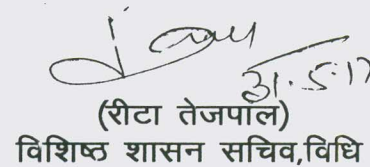 31.5.17
(रीटा तेजपाल)
विशिष्ठ शासन सचिव,विधि